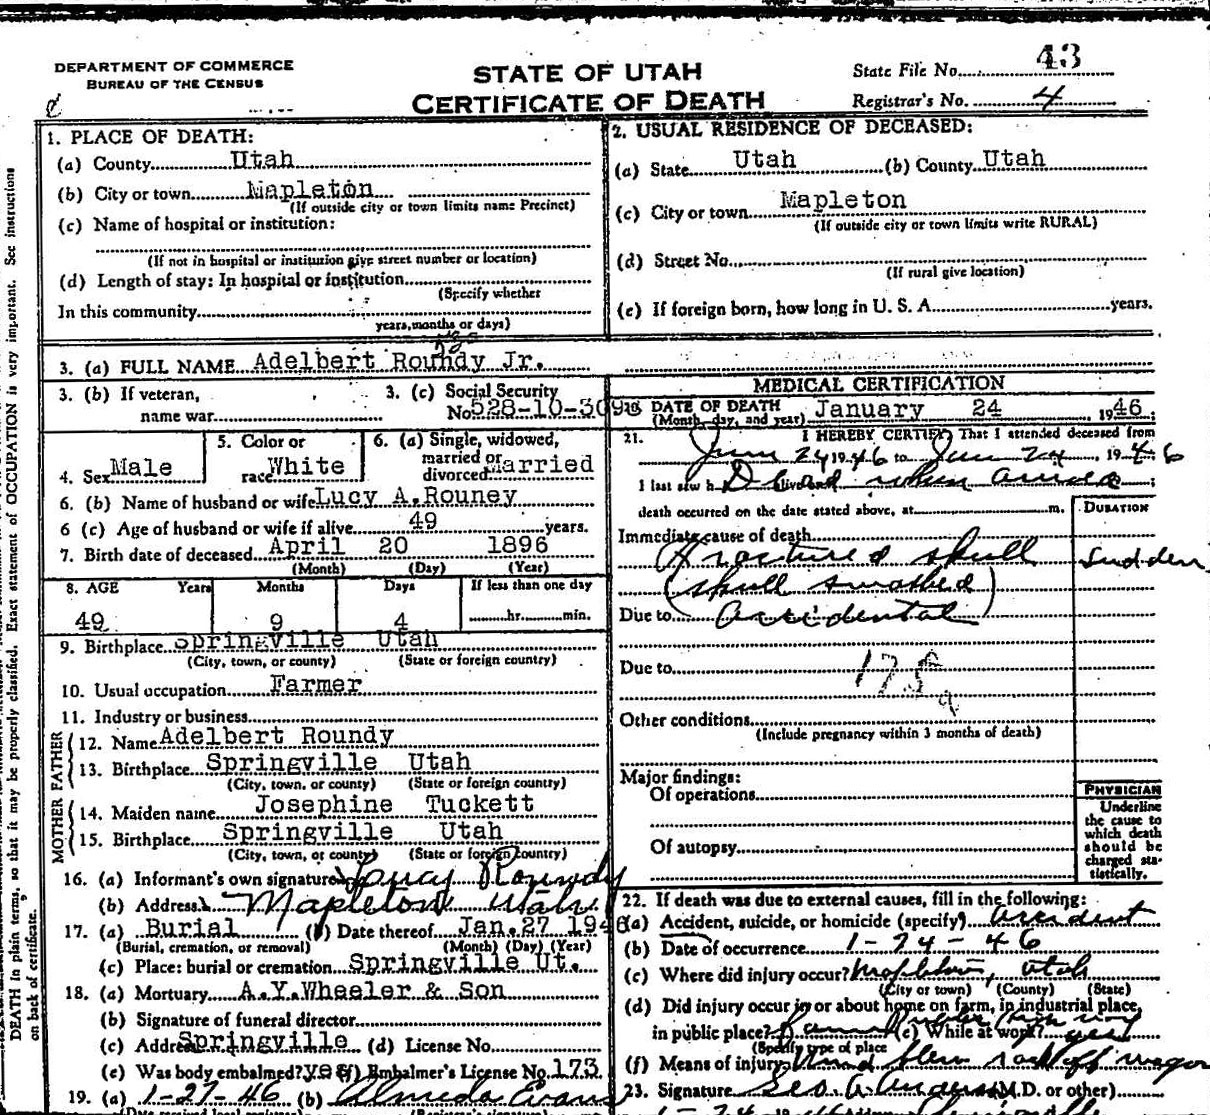 DEPARTMENT OF COMMERCE
BUREAU OF THE CENSUS
STATE OF UTAH
CERTIFICATE OF DEATH
State File No. 43
Registrar's No. 4
1. PLACE OF DEATH:
(a) County Utah
(b) City or town Mapleton
(If outside city or town limits name Precinct)
(c) Name of hospital or institution:
(If not in hospital or institution give street number or location)
(d) Length of stay: In hospital or institution
(Specify whether
In this community
years, months or days)
2. USUAL RESIDENCE OF DECEASED:
(a) State Utah (b) County Utah
(c) City or town Mapleton
(If outside city or town limits write RURAL)
(d) Street No.
(If rural give location)
(e) If foreign born, how long in U. S. A. years.
3. (a) FULL NAME Adelbert Roundy Jr.
3. (b) If veteran,
name war
3. (c) Social Security
No. 528-10-309
4. Sex Male
5. Color or
race White
6. (a) Single, widowed,
married or
divorced Married
6. (b) Name of husband or wife Lucy A. Rouney
6 (c) Age of husband or wife if alive 49 years.
7. Birth date of deceased April 20 1896
(Month) (Day) (Year)
8. AGE Years Months Days If less than one day
49 9 4 hr. min.
9. Birthplace Springville Utah
(City, town, or county) (State or foreign country)
10. Usual occupation Farmer
11. Industry or business
FATHER
12. Name Adelbert Roundy
13. Birthplace Springville Utah
(City, town, or county) (State or foreign country)
MOTHER
14. Maiden name Josephine Tuckett
15. Birthplace Springville Utah
(City, town, or county) (State or foreign country)
16. (a) Informant's own signature Lucy Roundy
(b) Address Mapleton Utah
17. (a) Burial (b) Date thereof Jan. 27 1946
(Burial, cremation, or removal) (Month) (Day) (Year)
(c) Place: burial or cremation Springville Ut.
18. (a) Mortuary A.Y.Wheeler & Son
(b) Signature of funeral director
(c) Address Springville (d) License No.
(e) Was body embalmed? yes (f) Embalmer's License No. 173
19. (a) 1-27-46 (b) Almeda Evans
MEDICAL CERTIFICATION
20. DATE OF DEATH January 24 1946;
(Month, day, and year)
21. I HEREBY CERTIFY, That I attended deceased from
24 1946 to 24, 1946
I last saw h Dead alive on when arrived;
death occurred on the date stated above, at m.
DURATION
Immediate cause of death
Fractured skull Sudden
(skull smashed)
Due to accidental
Due to
Other conditions
(Include pregnancy within 3 months of death)
Major findings:
Of operations
Of autopsy
PHYSICIAN
Underline
the cause to
which death
should be
charged sta-
tistically.
22. If death was due to external causes, fill in the following:
(a) Accident, suicide, or homicide (specify) accident
(b) Date of occurrence 1-24-46
(c) Where did injury occur? Mapleton, Utah
(City or town) (County) (State)
(d) Did injury occur in or about home on farm, in industrial place,
in public place? (e) While at work? yes
(Specify type of place
(f) Means of injury Wind blew rack off wagon
23. Signature Geo. A. Anderson (M.D. or other)
DEATH in plain terms, so that it may be properly classified. Exact statement of OCCUPATION is very important. See instructions
on back of certificate.